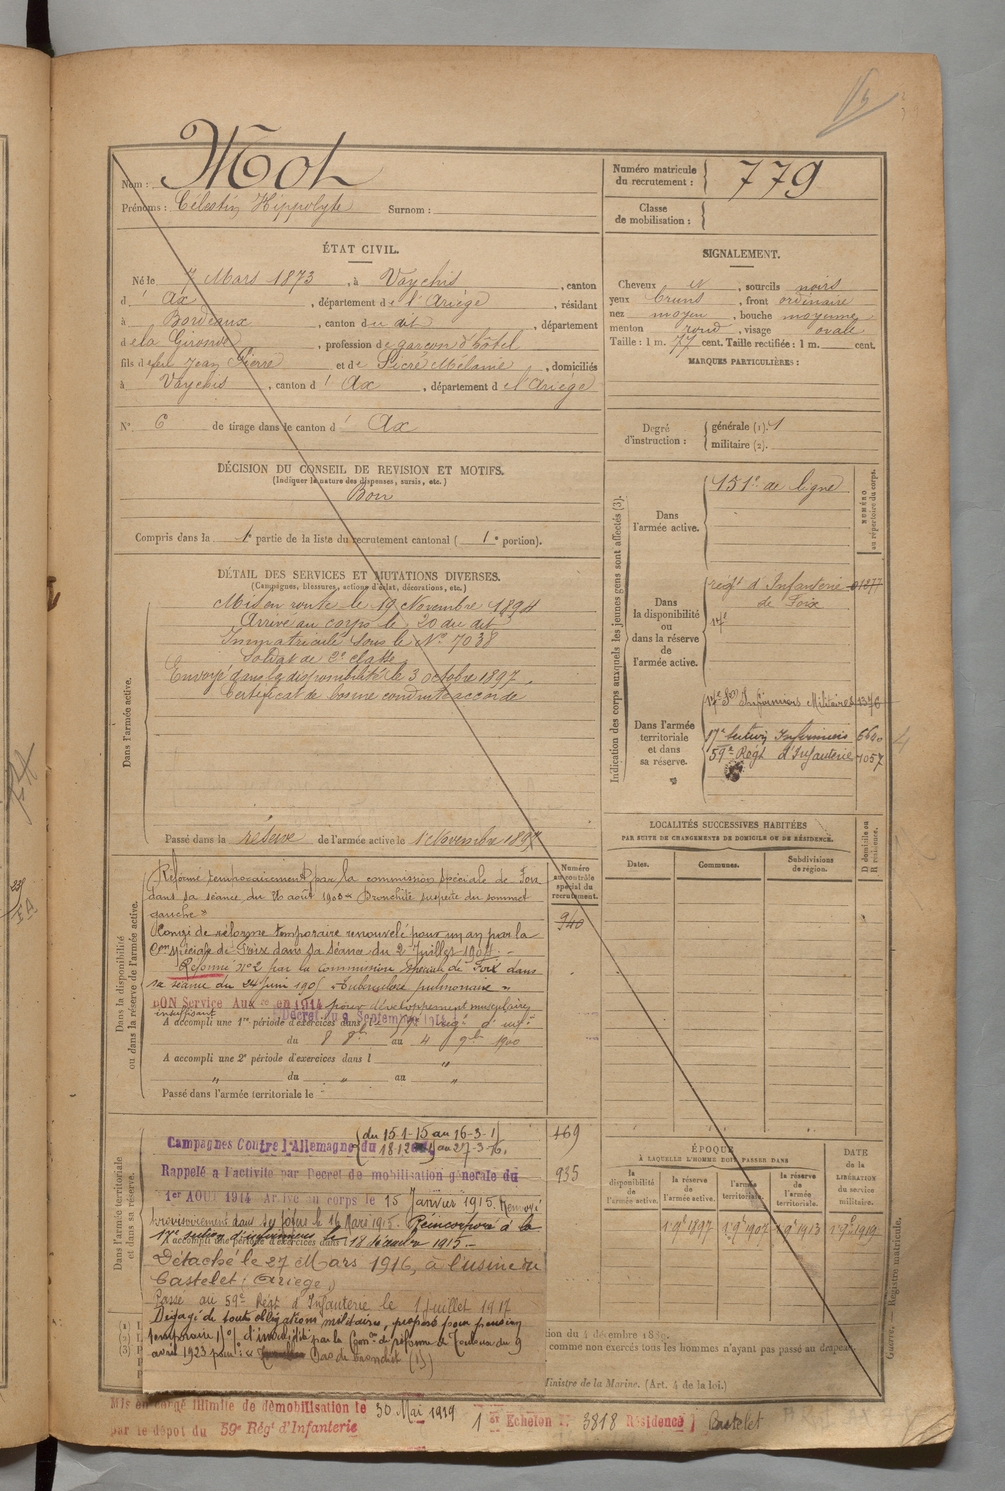 Nom : Mot
Prénoms : Célestin Hippolyte Surnom :
Numéro matricule du recrutement : 779
Classe de mobilisation :
ÉTAT CIVIL.
Né le 7 Mars 1873, à Vaychis, canton
d' Ax, département de l'Ariège, résidant
à Bordeaux, canton du dit, département
de la Gironde, profession de garçon d'hôtel
fils de feu Jean Pierre et de Sicre Mélanie, domiciliés
à Vaychis, canton d' Ax, département de l'Ariège
N° 6 de tirage dans le canton d' Ax
SIGNALEMENT.
Cheveux et, sourcils noirs
yeux bruns, front ordinaire
nez moyen, bouche moyenne
menton rond, visage ovale
Taille : 1 m. 77 cent. Taille rectifiée : 1 m. cent.
MARQUES PARTICULIÈRES :
Degré d'instruction : générale (1). 1
militaire (2).
DÉCISION DU CONSEIL DE REVISION ET MOTIFS.
(Indiquer la nature des dispenses, sursis, etc.)
Bon
Compris dans la 1e partie de la liste du recrutement cantonal ( 1e portion).
DÉTAIL DES SERVICES ET MUTATIONS DIVERSES.
(Campagnes, blessures, actions d'éclat, décorations, etc.)
Dans l'armée active.
Mis en route le 19 Novembre 1894
Arrivé au corps le 20 du dit
Immatriculé sous le N° 7038
Soldat de 2e classe
Envoyé dans la disponibilité le 3 octobre 1897.
Certificat de bonne conduite accordé
Passé dans la réserve de l'armée active le 1er Novembre 1897
Indication des corps auxquels les jeunes gens sont affectés (3).
NUMÉRO au répertoire du corps.
Dans l'armée active.
151e de ligne
Dans la disponibilité ou dans la réserve de l'armée active.
regt d'Infanterie 01877
de Foix
Dans l'armée territoriale et dans sa réserve.
17e Son Infirmiers Militaires 1376
17e section Infirmiers 6640
59e Régt d'Infanterie 7057
LOCALITÉS SUCCESSIVES HABITÉES
PAR SUITE DE CHANGEMENTS DE DOMICILE OU DE RÉSIDENCE.
Dates. Communes. Subdivisions de région. D domicile ou R résidence.
Dans la disponibilité ou dans la réserve de l'armée active.
Réformé temporairement par la commission spéciale de Foix
dans sa séance du 26 août 1903 « Bronchite suspecte du sommet
gauche »
Congé de réforme temporaire renouvelé pour un an par la
Con spéciale de Foix dans sa séance du 2 Juillet 1904.
Réformé n° 2 par la Commission spéciale de Foix dans
sa séance du 24 Juin 1905 « Tuberculose pulmonaire »
BON Service Aux re en 1914 pour développement musculaire
insuffisant Décret du 9 Septembre 1914
A accompli une 1re période d'exercices dans
du 8 8bre au 4 9bre 1900
A accompli une 2e période d'exercices dans l "
" du " au "
Passé dans l'armée territoriale le
Numéro au contrôle spécial du recrutement.
940
469
935
Dans l'armée territoriale et dans sa réserve.
Campagnes Contre l'Allemagne du
Rappelé à l'activité par Décret de mobilisation générale du
1er AOUT 1914 Arrivé au corps le 15 Janvier 1915. Renvoyé
provisoirement dans ses foyers le 16 Mars 1915. Réincorporé à la
17e section d'infirmiers le 18 décembre 1915.
Détaché le 27 Mars 1916, à l'usine de
Castelet (Ariège)
Passé au 59e Régt d'Infanterie le 1 Juillet 1917
Dégagé de toutes obligations militaires, proposé pour pension
temporaire d'invalidité par la Con de réforme de Toulouse du 9
avril 1923 pour :
ÉPOQUE
À LAQUELLE L'HOMME DOIT PASSER DANS
la disponibilité de l'armée active. la réserve de l'armée active. l'armée territoriale. la réserve de l'armée territoriale. DATE de la LIBÉRATION du service militaire.
1 9e 1897 1 9e 1907 1 9e 1913 1 9e 1919
tion du 4 décembre 1889.
comme non exercés tous les hommes n'ayant pas passé au drapeau
Ministre de la Marine. (Art. 4 de la loi.)
Guerre. — Registre matricule.
Mis en congé illimité de démobilisation le 30 Mai 1919 1 er Echelon N° 3818 Résidence Castelet
par le dépôt du 59e Régt d'Infanterie